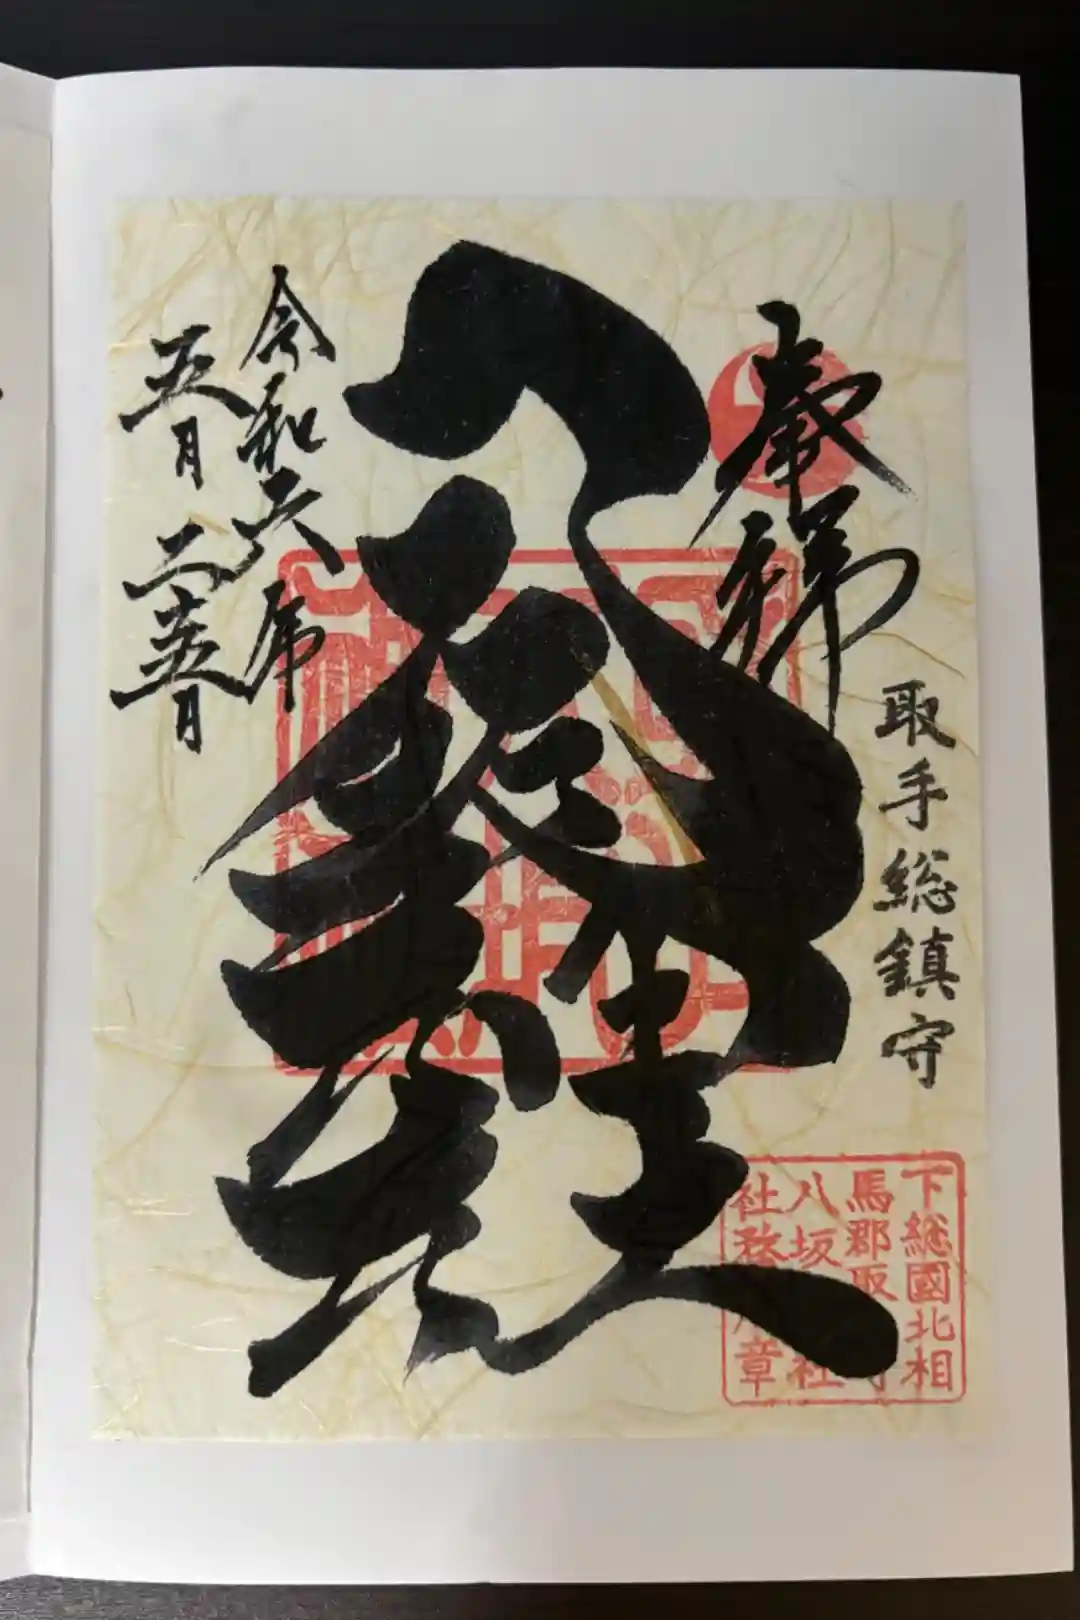 奉拝
取手総鎮守
八坂神社
令和六年
五月二十五日
下総國北相
馬郡取
八坂 社
社務 章